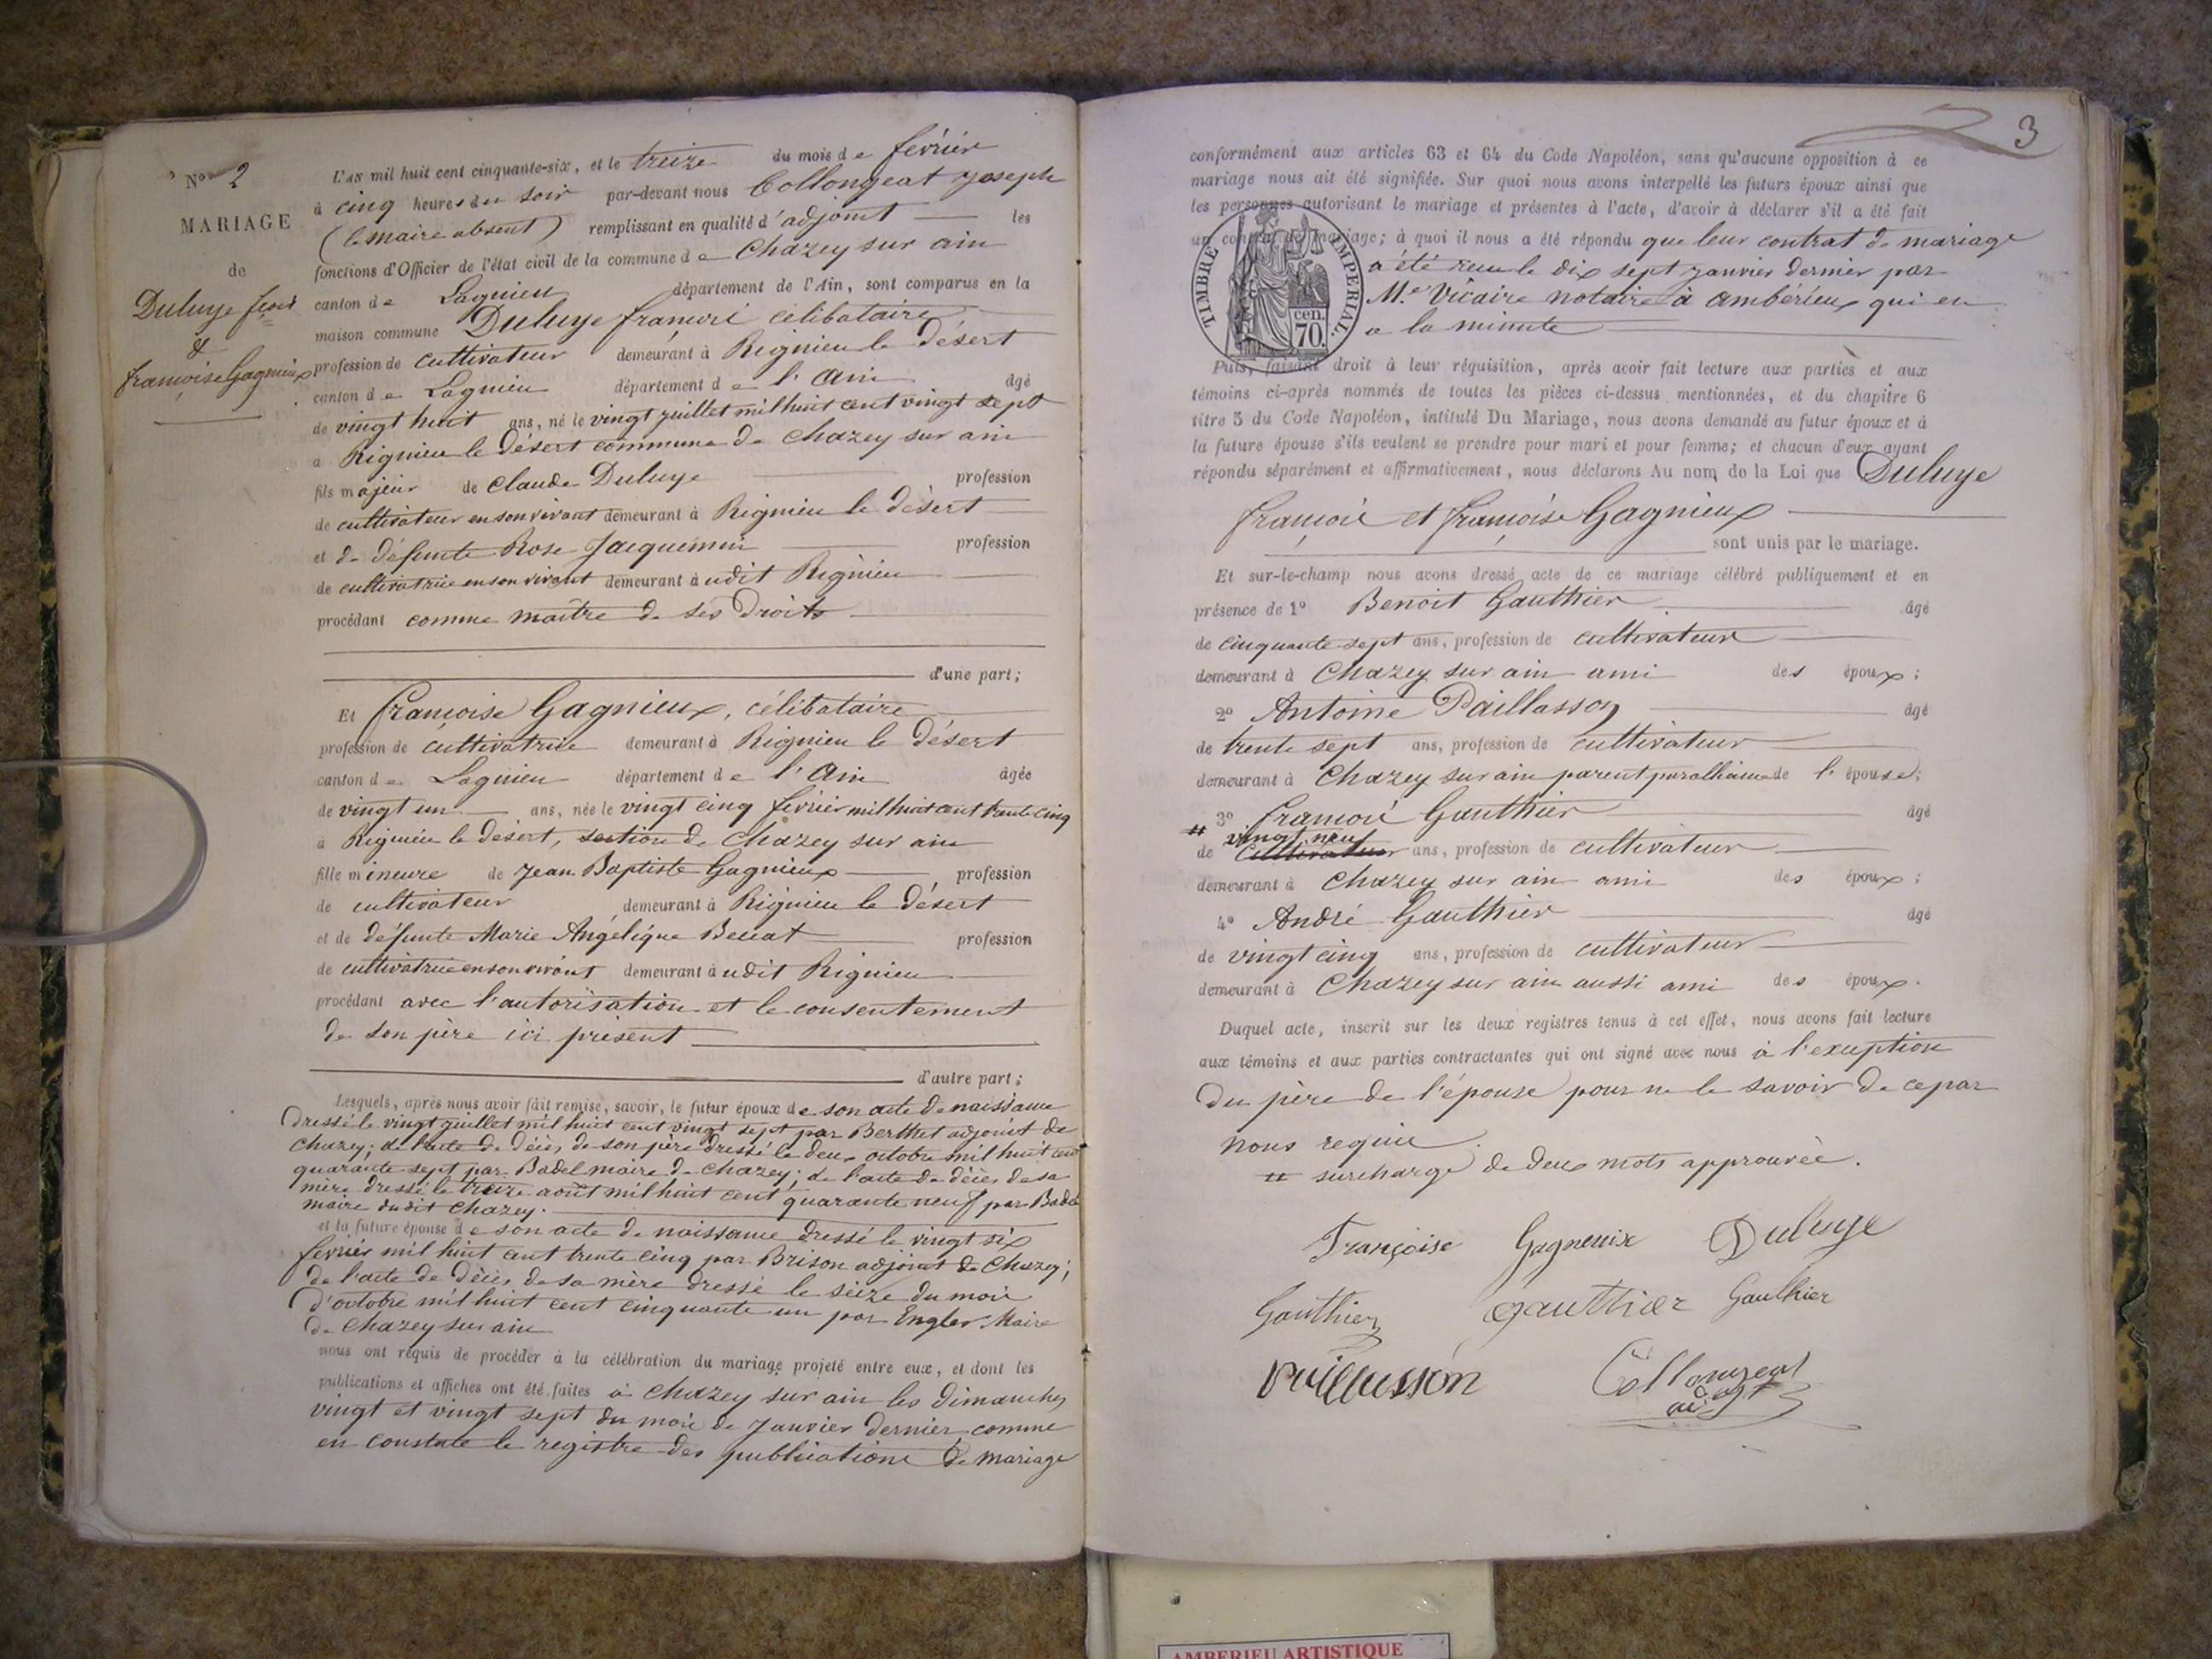 No 2
MARIAGE
de
Duluye fçois
&
françoise Gagnieux
L'AN mil huit cent cinquante-six, et le treize du mois de février
à cinq heures du soir par-devant nous Collongeat Joseph
(le maire absent) remplissant en qualité d'adjoint les
fonctions d'Officier de l'état civil de la commune de Chazey sur ain
canton de Lagnieu département de l'Ain, sont comparus en la
maison commune Duluye françois célibataire
profession de cultivateur demeurant à Rignieu le Désert
canton de Lagnieu département de l'Ain âgé
de vingt huit ans, né le vingt juillet mil huit cent vingt sept
à Rignieu le Désert commune de Chazey sur ain
fils majeur de Claude Duluye profession
de cultivateur en son vivant demeurant à Rignieu le désert
et de défunte Rose Jacquemin profession
de cultivatrice en son vivant demeurant à udit Rignieu
procédant comme maître de ses Droits
d'une part;
Et françoise Gagnieux, célibataire
profession de cultivatrice demeurant à Rignieu le Désert
canton de Lagnieu département de l'Ain âgée
de vingt un ans, née le vingt cinq février mil huit cent trente cinq
à Rignieu le Désert, section de Chazey sur ain
fille mineure de Jean Baptiste Gagnieux profession
de cultivateur demeurant à Rignieu le Désert
et de défunte Marie Angélique profession
de cultivatrice en son vivant demeurant à udit Rignieu
procédant avec l'autorisation et le consentement
de son père ici présent
d'autre part;
Lesquels, après nous avoir fait remise, savoir, le futur époux de son acte de naissance
dressé le vingt juillet mil huit cent vingt sept par Berthet adjoint de
Chazey; de l'acte de décès de son père dressé le deux octobre mil huit cent
quarante sept par Badel maire de Chazey; de l'acte de décès de sa
mère dressé le treize août mil huit cent quarante neuf par Badel
maire dudit Chazey.
et la future épouse de son acte de naissance dressé le vingt six
février mil huit cent trente cinq par Brison adjoint de Chazey;
de l'acte de décès de sa mère dressé le seize du mois
d'octobre mil huit cent cinquante un par Engler Maire
de Chazey sur ain
nous ont requis de procéder à la célébration du mariage projeté entre eux, et dont les
publications et affiches ont été faites à Chazey sur ain les dimanches
vingt et vingt sept du mois de Janvier dernier comme
en constate le registre des publications de mariage
3
conformément aux articles 63 et 64 du Code Napoléon, sans qu'aucune opposition à ce
mariage nous ait été signifiée. Sur quoi nous avons interpellé les futurs époux ainsi que
les personnes autorisant le mariage et présentes à l'acte, d'avoir à déclarer s'il a été fait
un contrat de mariage; à quoi il nous a été répondu que leur contrat de mariage
a été reçu le dix sept janvier dernier par
Me Vicaire notaire à ambérieux qui en
a la minute
TIMBRE IMPERIAL.
cen.
70.
Puis, faisant droit à leur réquisition, après avoir fait lecture aux parties et aux
témoins ci-après nommés de toutes les pièces ci-dessus mentionnées, et du chapitre 6
titre 5 du Code Napoléon, intitulé Du Mariage, nous avons demandé au futur époux et à
la future épouse s'ils veulent se prendre pour mari et pour femme; et chacun d'eux ayant
répondu séparément et affirmativement, nous déclarons Au nom de la Loi que Duluye
françois et françoise Gagnieux
sont unis par le mariage.
Et sur-le-champ nous avons dressé acte de ce mariage célébré publiquement et en
présence de 1º Benoit Gauthier âgé
de cinquante sept ans, profession de cultivateur
demeurant à Chazey sur ain ami des époux;
2º Antoine Paillasson âgé
de trente sept ans, profession de cultivateur
demeurant à Chazey sur ain parent par alliance de l'épouse;
3º françois Gauthier âgé
vingt neuf
de cultivateur ans, profession de cultivateur
demeurant à Chazey sur ain ami des époux;
4º André Gauthier âgé
de vingt cinq ans, profession de cultivateur
demeurant à Chazey sur ain aussi ami des époux.
Duquel acte, inscrit sur les deux registres tenus à cet effet, nous avons fait lecture
aux témoins et aux parties contractantes qui ont signé avec nous à l'exception
du père de l'épouse pour ne le savoir de ce par
nous requis
surcharge de deux mots approuvée.
Françoise Gagneuix Duluye
Gauthier gauthier Gauthier
Collongeat
adjt
AMBERIEU ARTISTIQUE